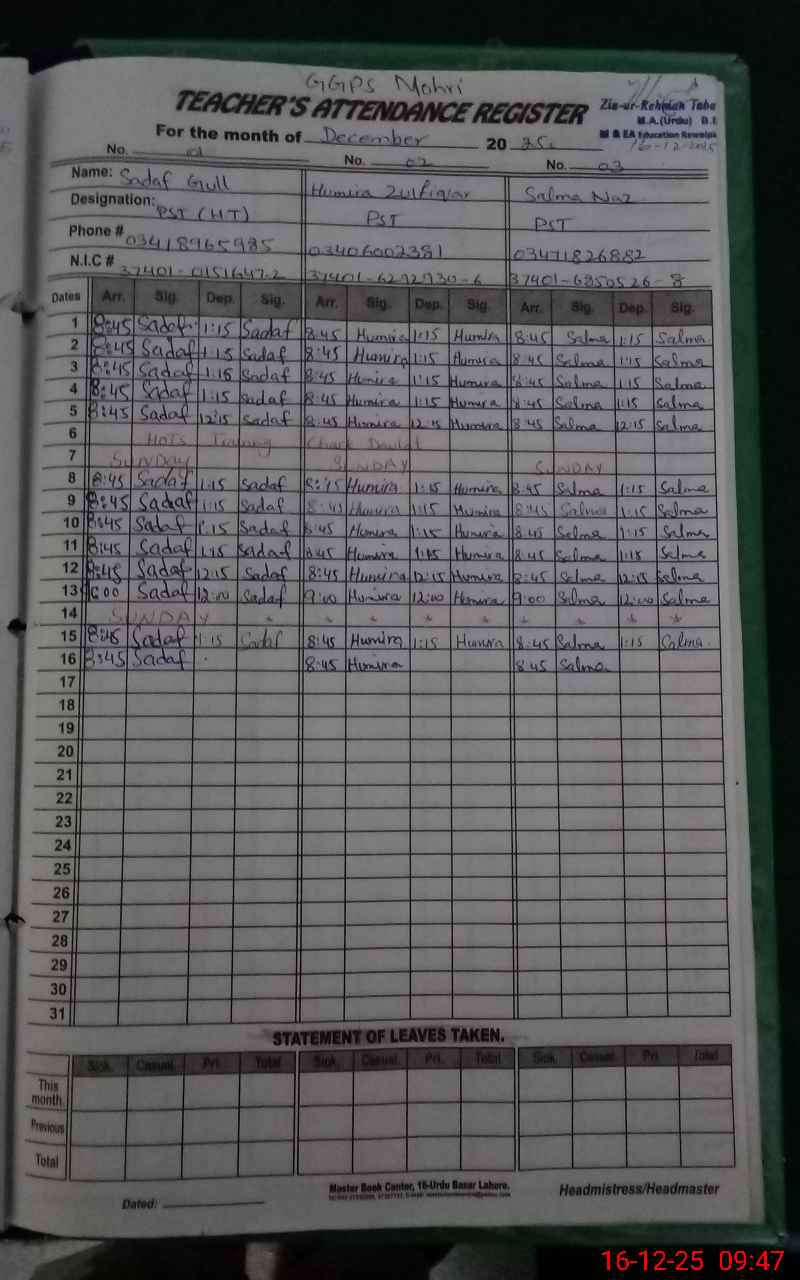 GGPS Mohri
TEACHER'S ATTENDANCE REGISTER
Zia-ur-Rehman
M.A.(Urdu) B.E
M & EA Education Rawalpindi
16-12-2025
For the month of December 20 25
No. 01 No. 02 No. 03
Name: Sadaf Gull Humira Zulfiqar Salma Naz
Designation: PST (HT) PST PST
Phone # 03418965985 03406002381 03471826882
N.I.C # 37401-0151647-2 37401-6292930-6 37401-6850526-8
Dates Arr. Sig. Dep. Sig. Arr. Sig. Dep. Sig. Arr. Sig. Dep. Sig.
1 8:45 Sadaf 1:15 Sadaf 8:45 Humira 1:15 Humira 8:45 Salma 1:15 Salma
2 8:45 Sadaf 1:15 Sadaf 8:45 Humira 1:15 Humira 8:45 Salma 1:15 Salma
3 8:45 Sadaf 1:15 Sadaf 8:45 Humira 1:15 Humira 8:45 Salma 1:15 Salma
4 8:45 Sadaf 1:15 Sadaf 8:45 Humira 1:15 Humira 8:45 Salma 1:15 Salma
5 8:45 Sadaf 12:15 Sadaf 8:45 Humira 12:15 Humira 8:45 Salma 12:15 Salma
6 HOTS Training Chack Daulat
7 SUNDAY SUNDAY SUNDAY
8 8:45 Sadaf 1:15 Sadaf 8:45 Humira 1:15 Humira 8:45 Salma 1:15 Salma
9 8:45 Sadaf 1:15 Sadaf 8:45 Humira 1:15 Humira 8:45 Salma 1:15 Salma
10 8:45 Sadaf 1:15 Sadaf 8:45 Humira 1:15 Humira 8:45 Salma 1:15 Salma
11 8:45 Sadaf 1:15 Sadaf 8:45 Humira 1:15 Humira 8:45 Salma 1:15 Salma
12 8:45 Sadaf 12:15 Sadaf 8:45 Humira 12:15 Humira 8:45 Salma 12:15 Salma
13 9:00 Sadaf 12:00 Sadaf 9:00 Humira 12:00 Humira 9:00 Salma 12:00 Salma
14 SUNDAY
15 8:45 Sadaf 1:15 Sadaf 8:45 Humira 1:15 Humira 8:45 Salma 1:15 Salma
16 8:45 Sadaf 8:45 Humira 8:45 Salma
17
18
19
20
21
22
23
24
25
26
27
28
29
30
31
STATEMENT OF LEAVES TAKEN.
Sick. Casual. Pri. Total Sick. Casual. Pri. Total Sick. Casual. Pri. Total
This month.
Previous
Total
Dated:
Master Book Center, 16-Urdu Bazar Lahore.
Headmistress/Headmaster
16-12-25 09:47